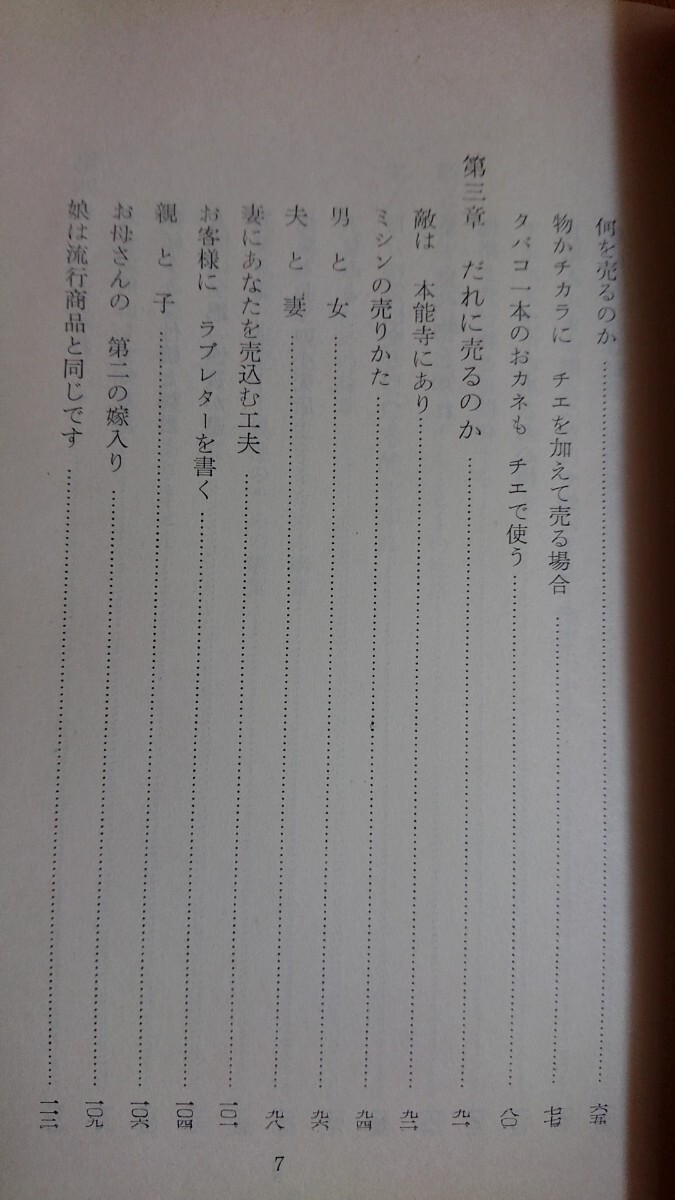 何を売るのか……六五
物かチカラに チエを加えて売る場合……七七
タバコ一本のおカネも チエで使う……八〇
第三章 だれに売るのか……九一
敵は 本能寺にあり……九二
ミシンの売りかた……九四
男と女……九六
夫と妻……九八
妻にあなたを売込む工夫……一〇一
お客様に ラブレターを書く……一〇四
親と子……一〇六
お母さんの 第二の嫁入り……一〇九
娘は流行商品と同じです……一一二
7